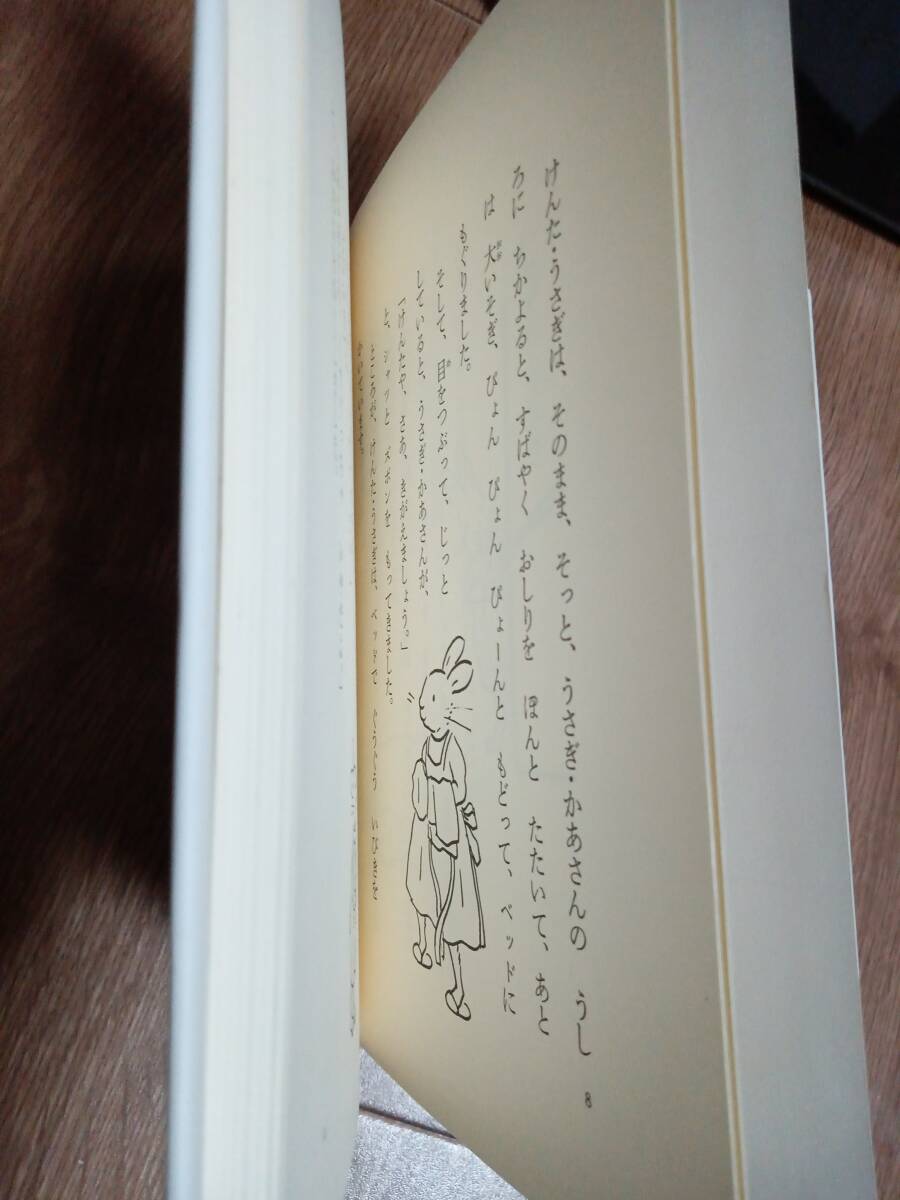 けんた・うさぎは、そのまま、そっと、うさぎ・かあさんの うし
ろに ちかよると、すばやく おしりを ぽんと たたいて、あと
は 大いそぎ、ぴょん ぴょん ぴょーんと もどって、ベッドに
もぐりました。
そして、目をつぶって、じっと
していると、うさぎ・かあさんが、
「けんたや、さあ、きがえましょう。」
と、シャツと ズボンを もってきました。
ところが、けんた・うさぎは、ベッドで ぐうぐう いびきを
かいています。
8